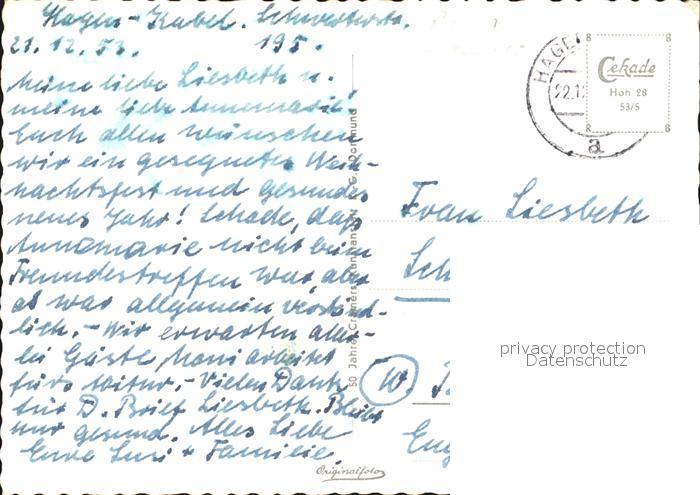 Hagen-Kabel. Schwerterstr.
21.12.53. 195.
Meine liebe Liesbeth u.
meine liebe Annemarie!
Euch allen wünschen
wir ein gesegnetes Weih-
nachtsfest und gesundes
neues Jahr! Schade, daß
Annemarie nicht beim
Freundestreffen war, aber
es war allgemein verständ-
lich. - Wir erwarten aller-
lei Gäste, Moni arbeitet
fürs Abitur. - Vielen Dank
für D. Brief Liesbeth. Bleibt
nur gesund. Alles Liebe
Eure Susi + Familie.
50 Jahre Cramers Kunstanstalt Dortmund
Originalfoto
HAGE
22.1
a
Cekade
Hoh 28
53/5
Frau Liesbeth
Sch
W.
privacy protection
Datenschutz